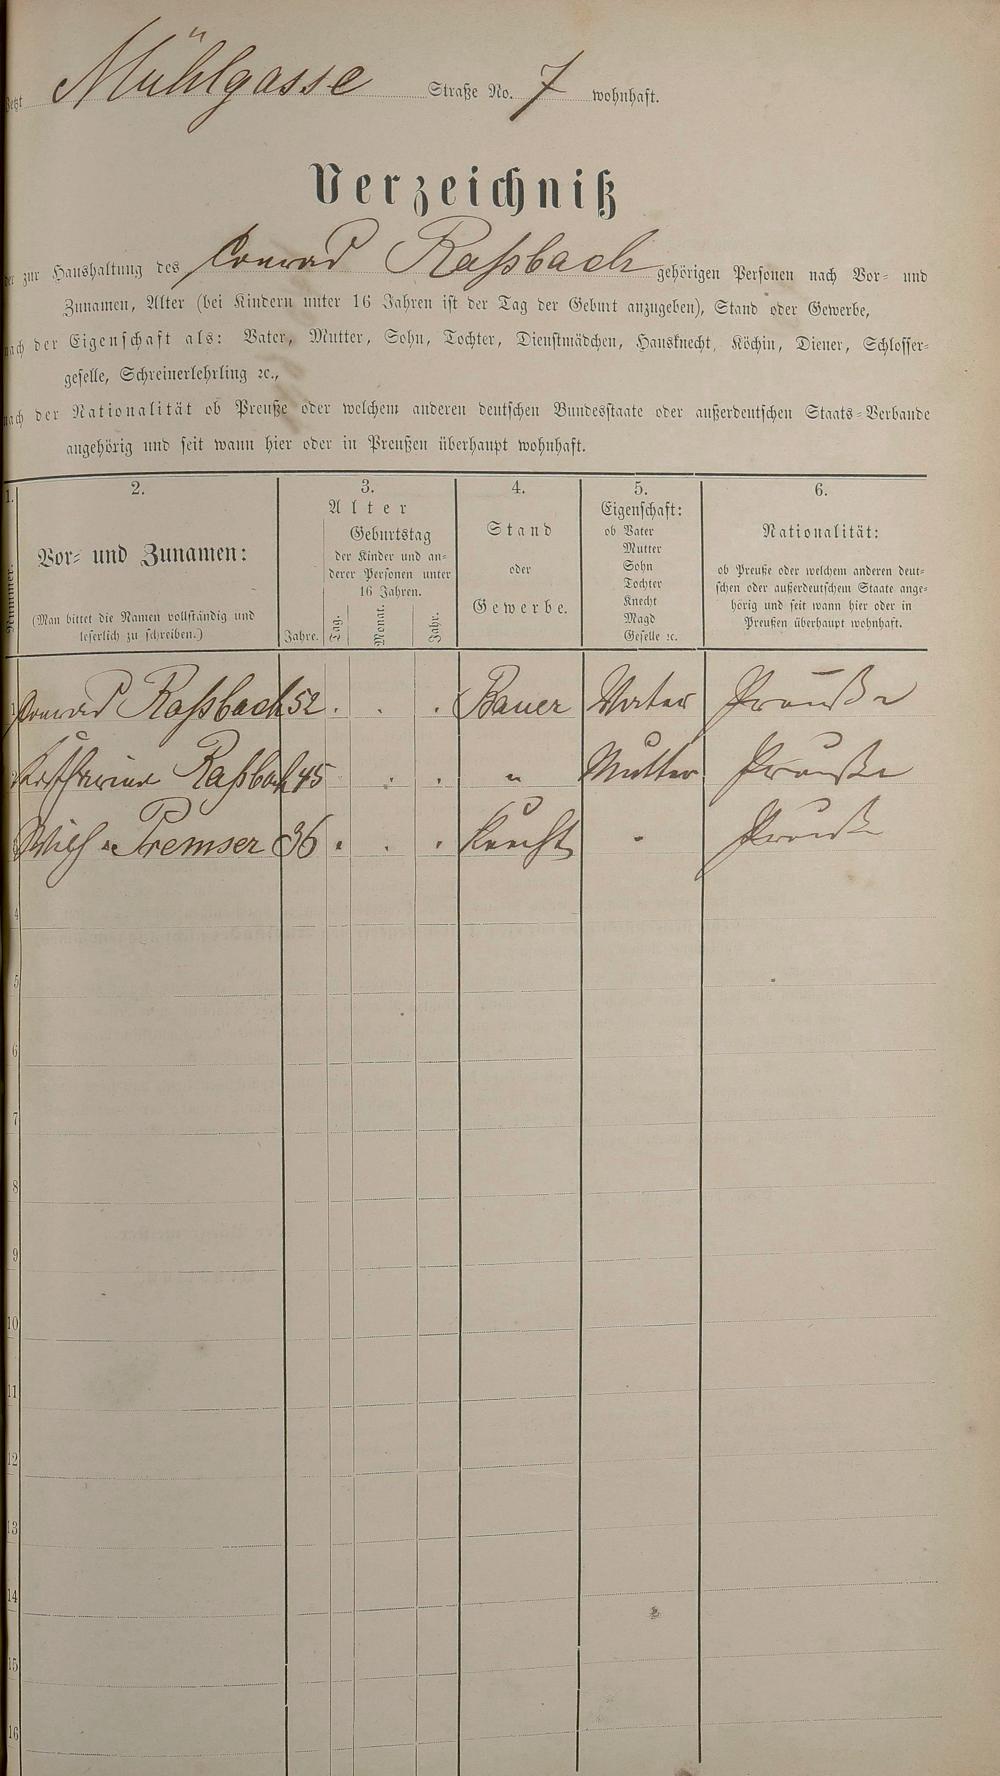 Jetzt Mühlgasse Straße No. 7 wohnhaft.
Verzeichniß
der zur Haushaltung des Conrad Raßbach gehörigen Personen nach Vor- und
Zunamen, Alter (bei Kindern unter 16 Jahren ist der Tag der Geburt anzugeben), Stand oder Gewerbe,
nach der Eigenschaft als: Vater, Mutter, Sohn, Tochter, Dienstmädchen, Hausknecht, Köchin, Diener, Schlosser-
geselle, Schreinerlehrling ꝛc.,
nach der Nationalität ob Preuße oder welchem anderen deutschen Bundesstaate oder außerdeutschen Staats-Verbande
angehörig und seit wann hier oder in Preußen überhaupt wohnhaft.
1.
Nummer.
2.
Vor- und Zunamen:
(Man bittet die Namen vollständig und
leserlich zu schreiben.)
3.
Alter
Jahre.
Geburtstag
der Kinder und an-
derer Personen unter
16 Jahren.
Tag.
Monat.
Jahr.
4.
Stand
oder
Gewerbe.
5.
Eigenschaft:
ob Vater
Mutter
Sohn
Tochter
Knecht
Magd
Geselle ꝛc.
6.
Nationalität:
ob Preuße oder welchem anderen deut-
schen oder außerdeutschem Staate ange-
hörig und seit wann hier oder in
Preußen überhaupt wohnhaft.
1 Conrad Raßbach 52 . . . Bauer Vater Preuße
Katharina Raßbach 45 . . " Mutter Preuße
Premser 36 . . . Knecht - Preuß
4
5
6
7
8
9
10
11
12
13
14
15
16